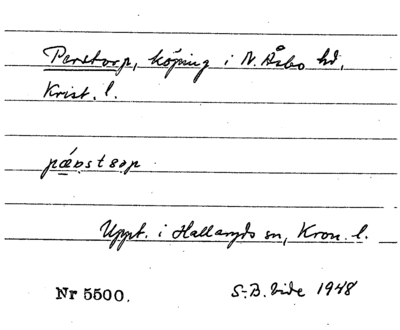 Perstorp, köping i N. Åsbo hd,
Krist. l.
pǽʀstɔrp
Uppt. i Hallaryds sn, Kron. l.
Nr 5500. S-B. Vide 1948